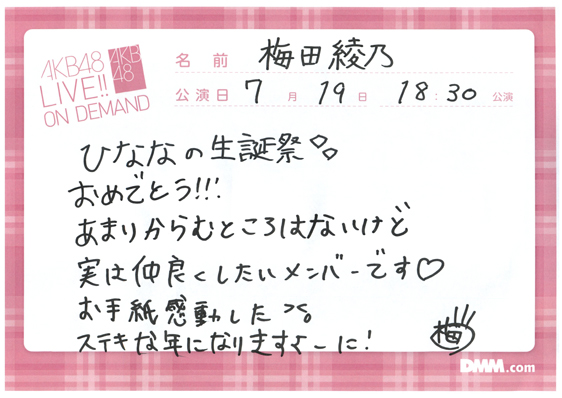 AKB48
LIVE!!
ON DEMAND
AKB
48
名前 梅田綾乃
公演日 7月19日 18:30公演
ひななの生誕祭
おめでとう!!!
あまりからむところはないけど
実は仲良くしたいメンバーです♡
お手紙感動した
ステキな年になりますよーに!
梅
DMM.com